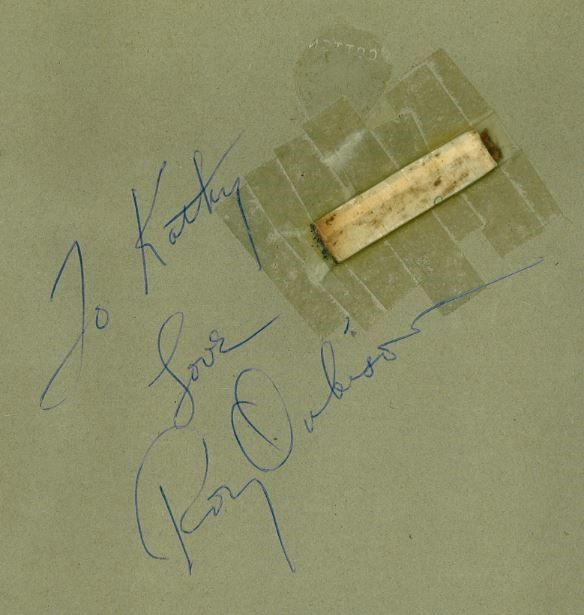 To Kathy
Love
Roy Orbison